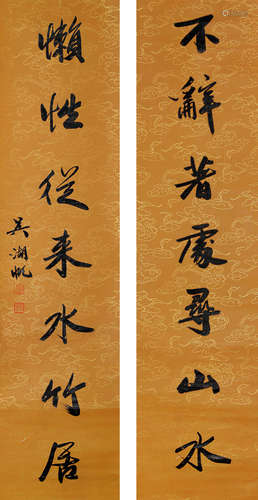 不辭著處尋山水
懶性從来水竹居
吴湖帆